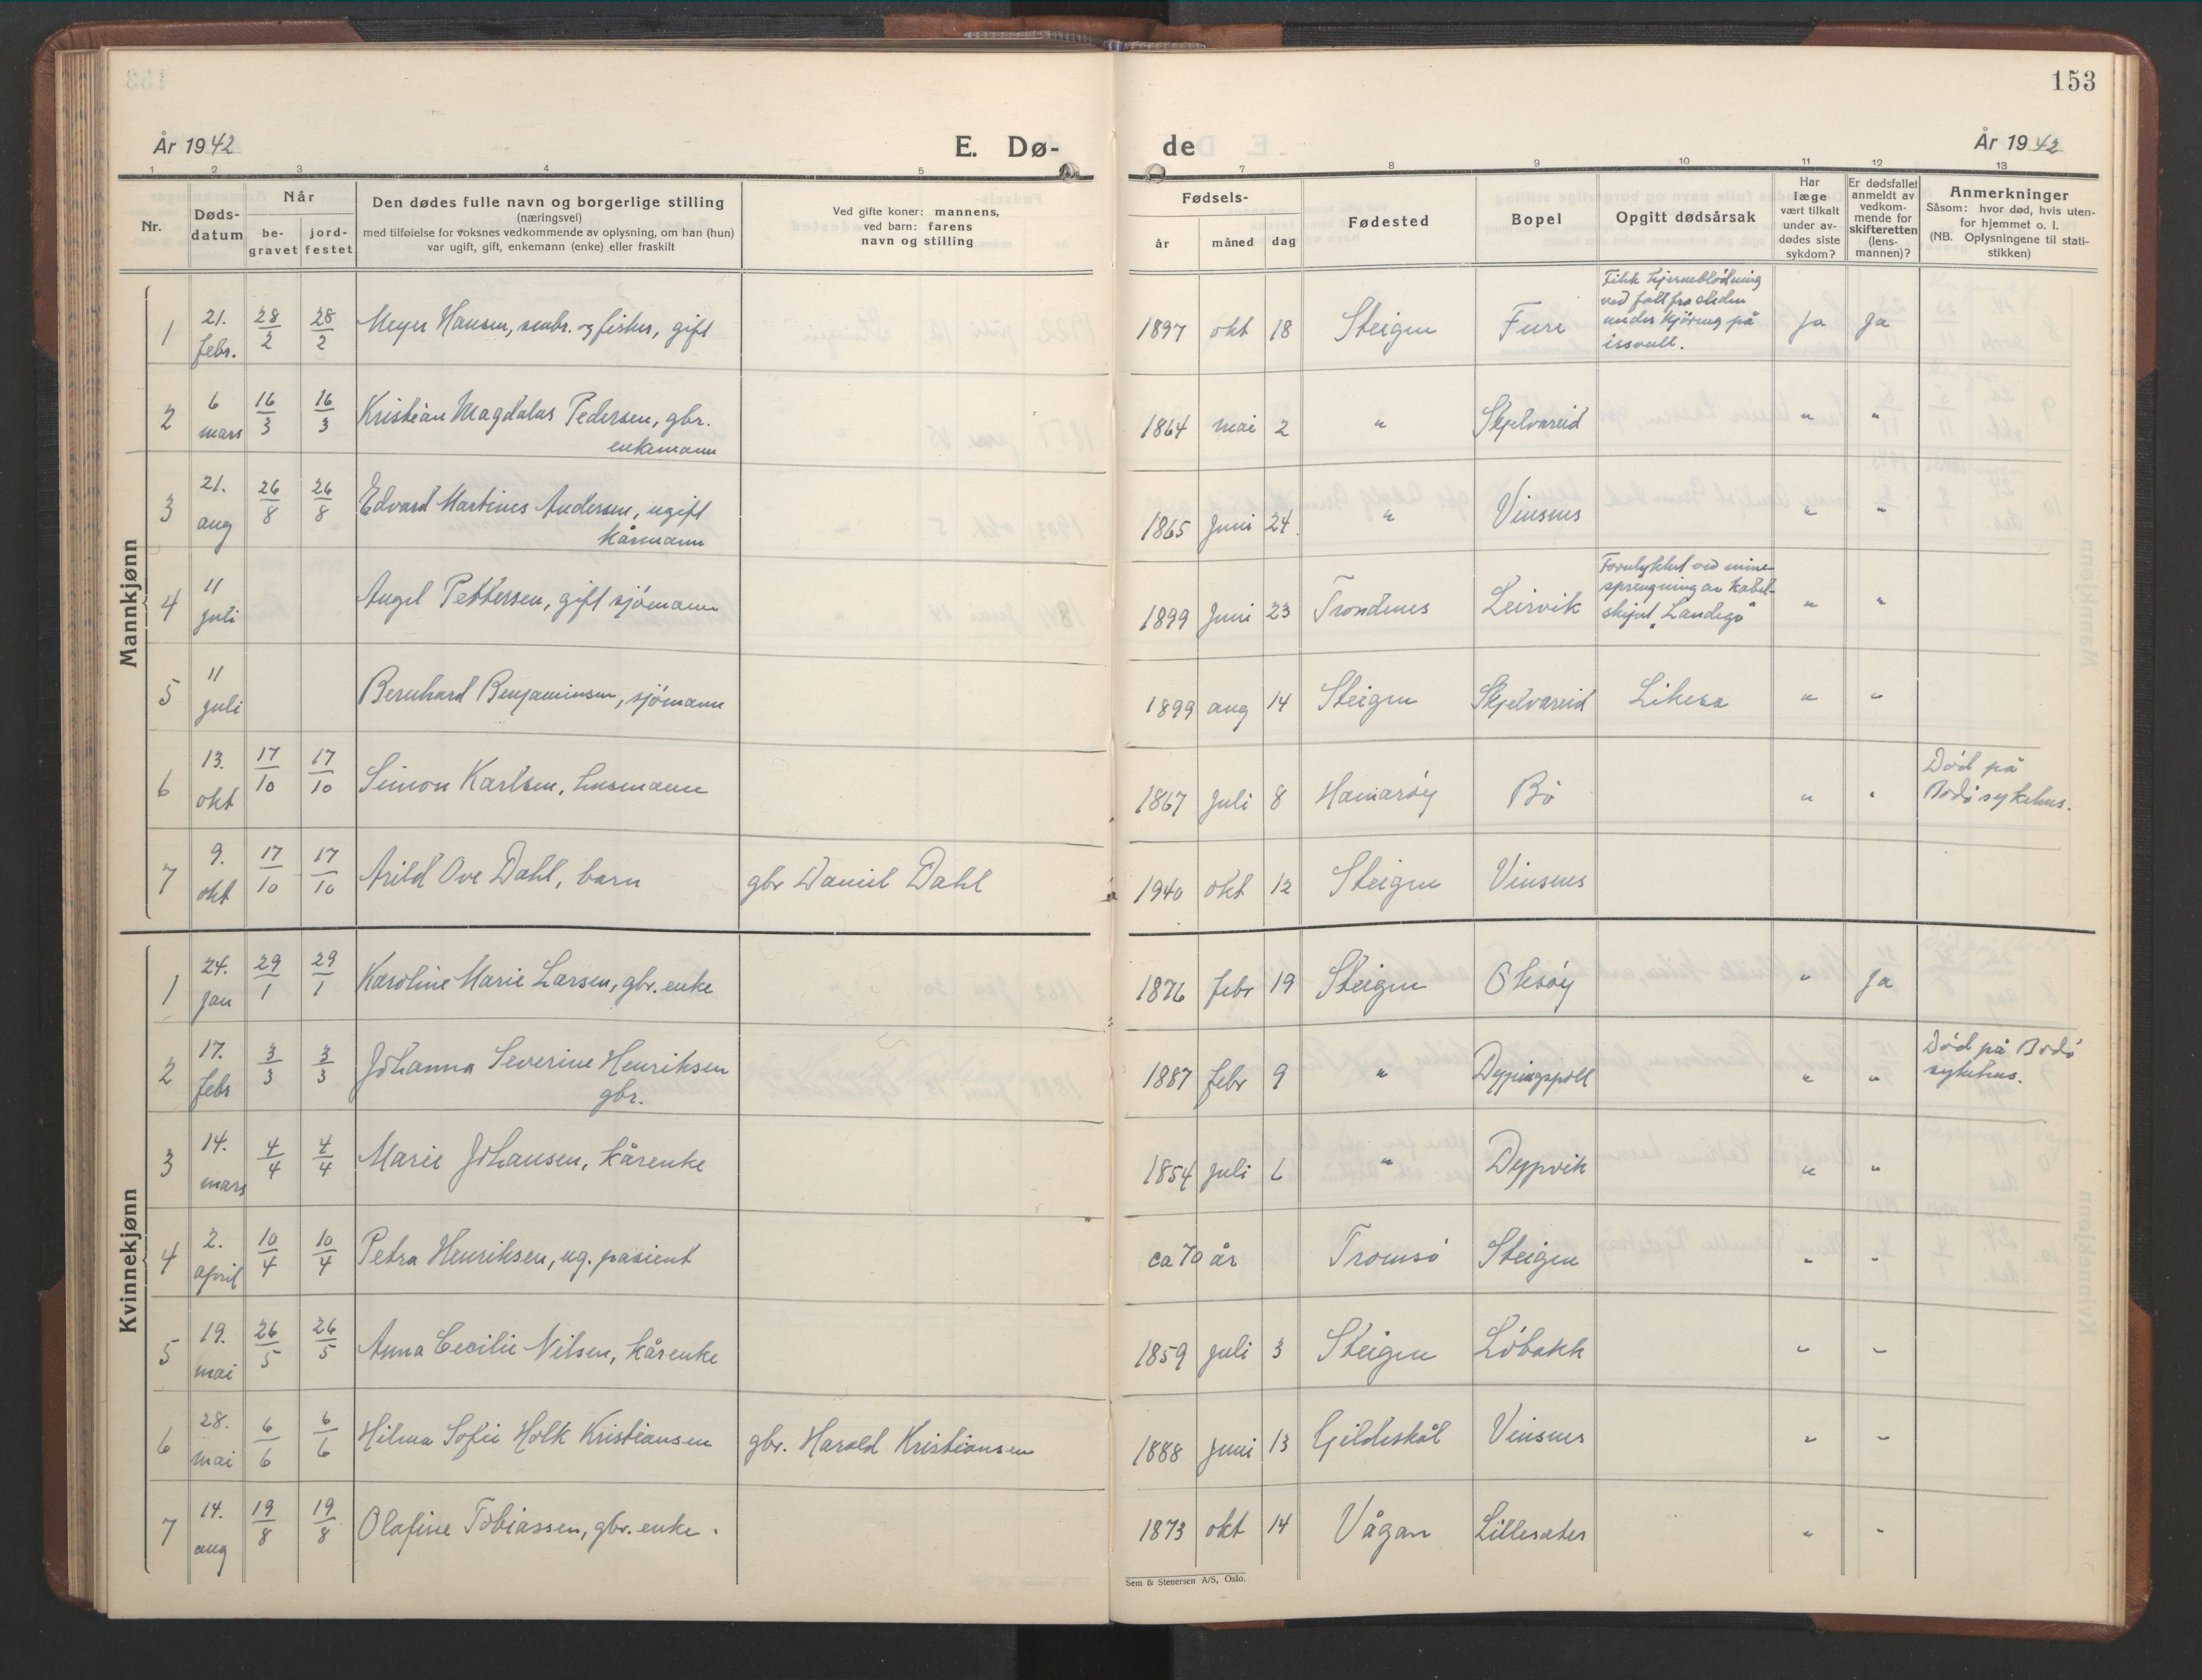 153
År 1942
E. Dø-
de
År 1942
1 2 3 4 5 7 8 9 10 11 12 13
Nr.
Døds-
datum
Når
be-
gravet
jord-
festet
Den dødes fulle navn og borgerlige stilling
(næringsvei)
med tilføielse for voksnes vedkommende av oplysning, om han (hun)
var ugift, gift, enkemann (enke) eller fraskilt
Ved gifte koner: mannens,
ved barn: farens
navn og stilling
Fødsels-
år måned dag
Fødested
Bopel
Opgitt dødsårsak
Har
læge
vært tilkalt
under av-
dødes siste
sykdom?
Er dødsfallet
anmeldt av
vedkom-
mende for
skifteretten
(lens-
mannen)?
Anmerkninger
Såsom: hvor død, hvis uten-
for hjemmet o. l.
(NB. Oplysningene til stati-
stikken)
Mannkjønn
1 21. febr. 28/2 28/2 Meyer Hansen, småbr. og fisker, gift 1897 okt 18 Steigen Fure
Fikk hjerneblødning
ved fall fra sleden
under kjøring på
issvull.
Ja Ja
2 6 mars 16/3 16/3 Kristian Magdalus Pedersen, gbr.
enkemann
1864 mai 2 " Skjelvareid " "
3 21. aug 26/8 26/8 Edvard Martinus Andersen, ugift
kårmann
1865 juni 24 " Vinsnes " "
4 11 juli Angel Pettersen, gift sjømann 1899 juni 23 Trondenes Leirvik
Forulykket ved mine-
sprengning av kabel-
skipet "Landego"
" "
5 11 juli Bernhard Benjaminsen, sjømann 1899 aug 14 Steigen Skjelvareid Likesa " "
6 13. okt 17/10 17/10 Simon Karlsen, husmann 1867 juli 8 Hamarøy Bø " "
Død på
Bodø sykehus.
7 9. okt 17/10 17/10 Arild Ove Dahl, barn gbr Daniel Dahl 1940 okt 12 Steigen Vinsnes
Kvinnekjønn
1 24. jan 29/1 29/1 Karoline Marie Larsen, gbr. enke 1876 febr 19 Steigen Oksøy " Ja
2 17. febr 3/3 3/3 Johanna Severine Henriksen
gbr.
1887 febr 9 " Dypingspoll " "
Død på Bodø
sykehus.
3 14. mars 4/4 4/4 Marie Johansen, kårenke 1854 juli 6 " Dypvik " "
4 2. april 10/4 10/4 Petra Henriksen, ug. pasient ca 70 år Tromsø Steigen " "
5 19. mai 26/5 26/5 Anna Cecilie Nilsen, kårenke 1859 juli 3 Steigen Løbakk " "
6 28. mai 6/6 6/6 Hilma Sofie Holk Kristiansen gbr. Harald Kristiansen 1888 juni 13 Gildeskål Vinsnes " "
7 14. aug 19/8 19/8 Olafine Tobiassen, gbr. enke. 1873 okt 14 Vågan Lillesæter " "
Sem & Stenersen A/S, Oslo.